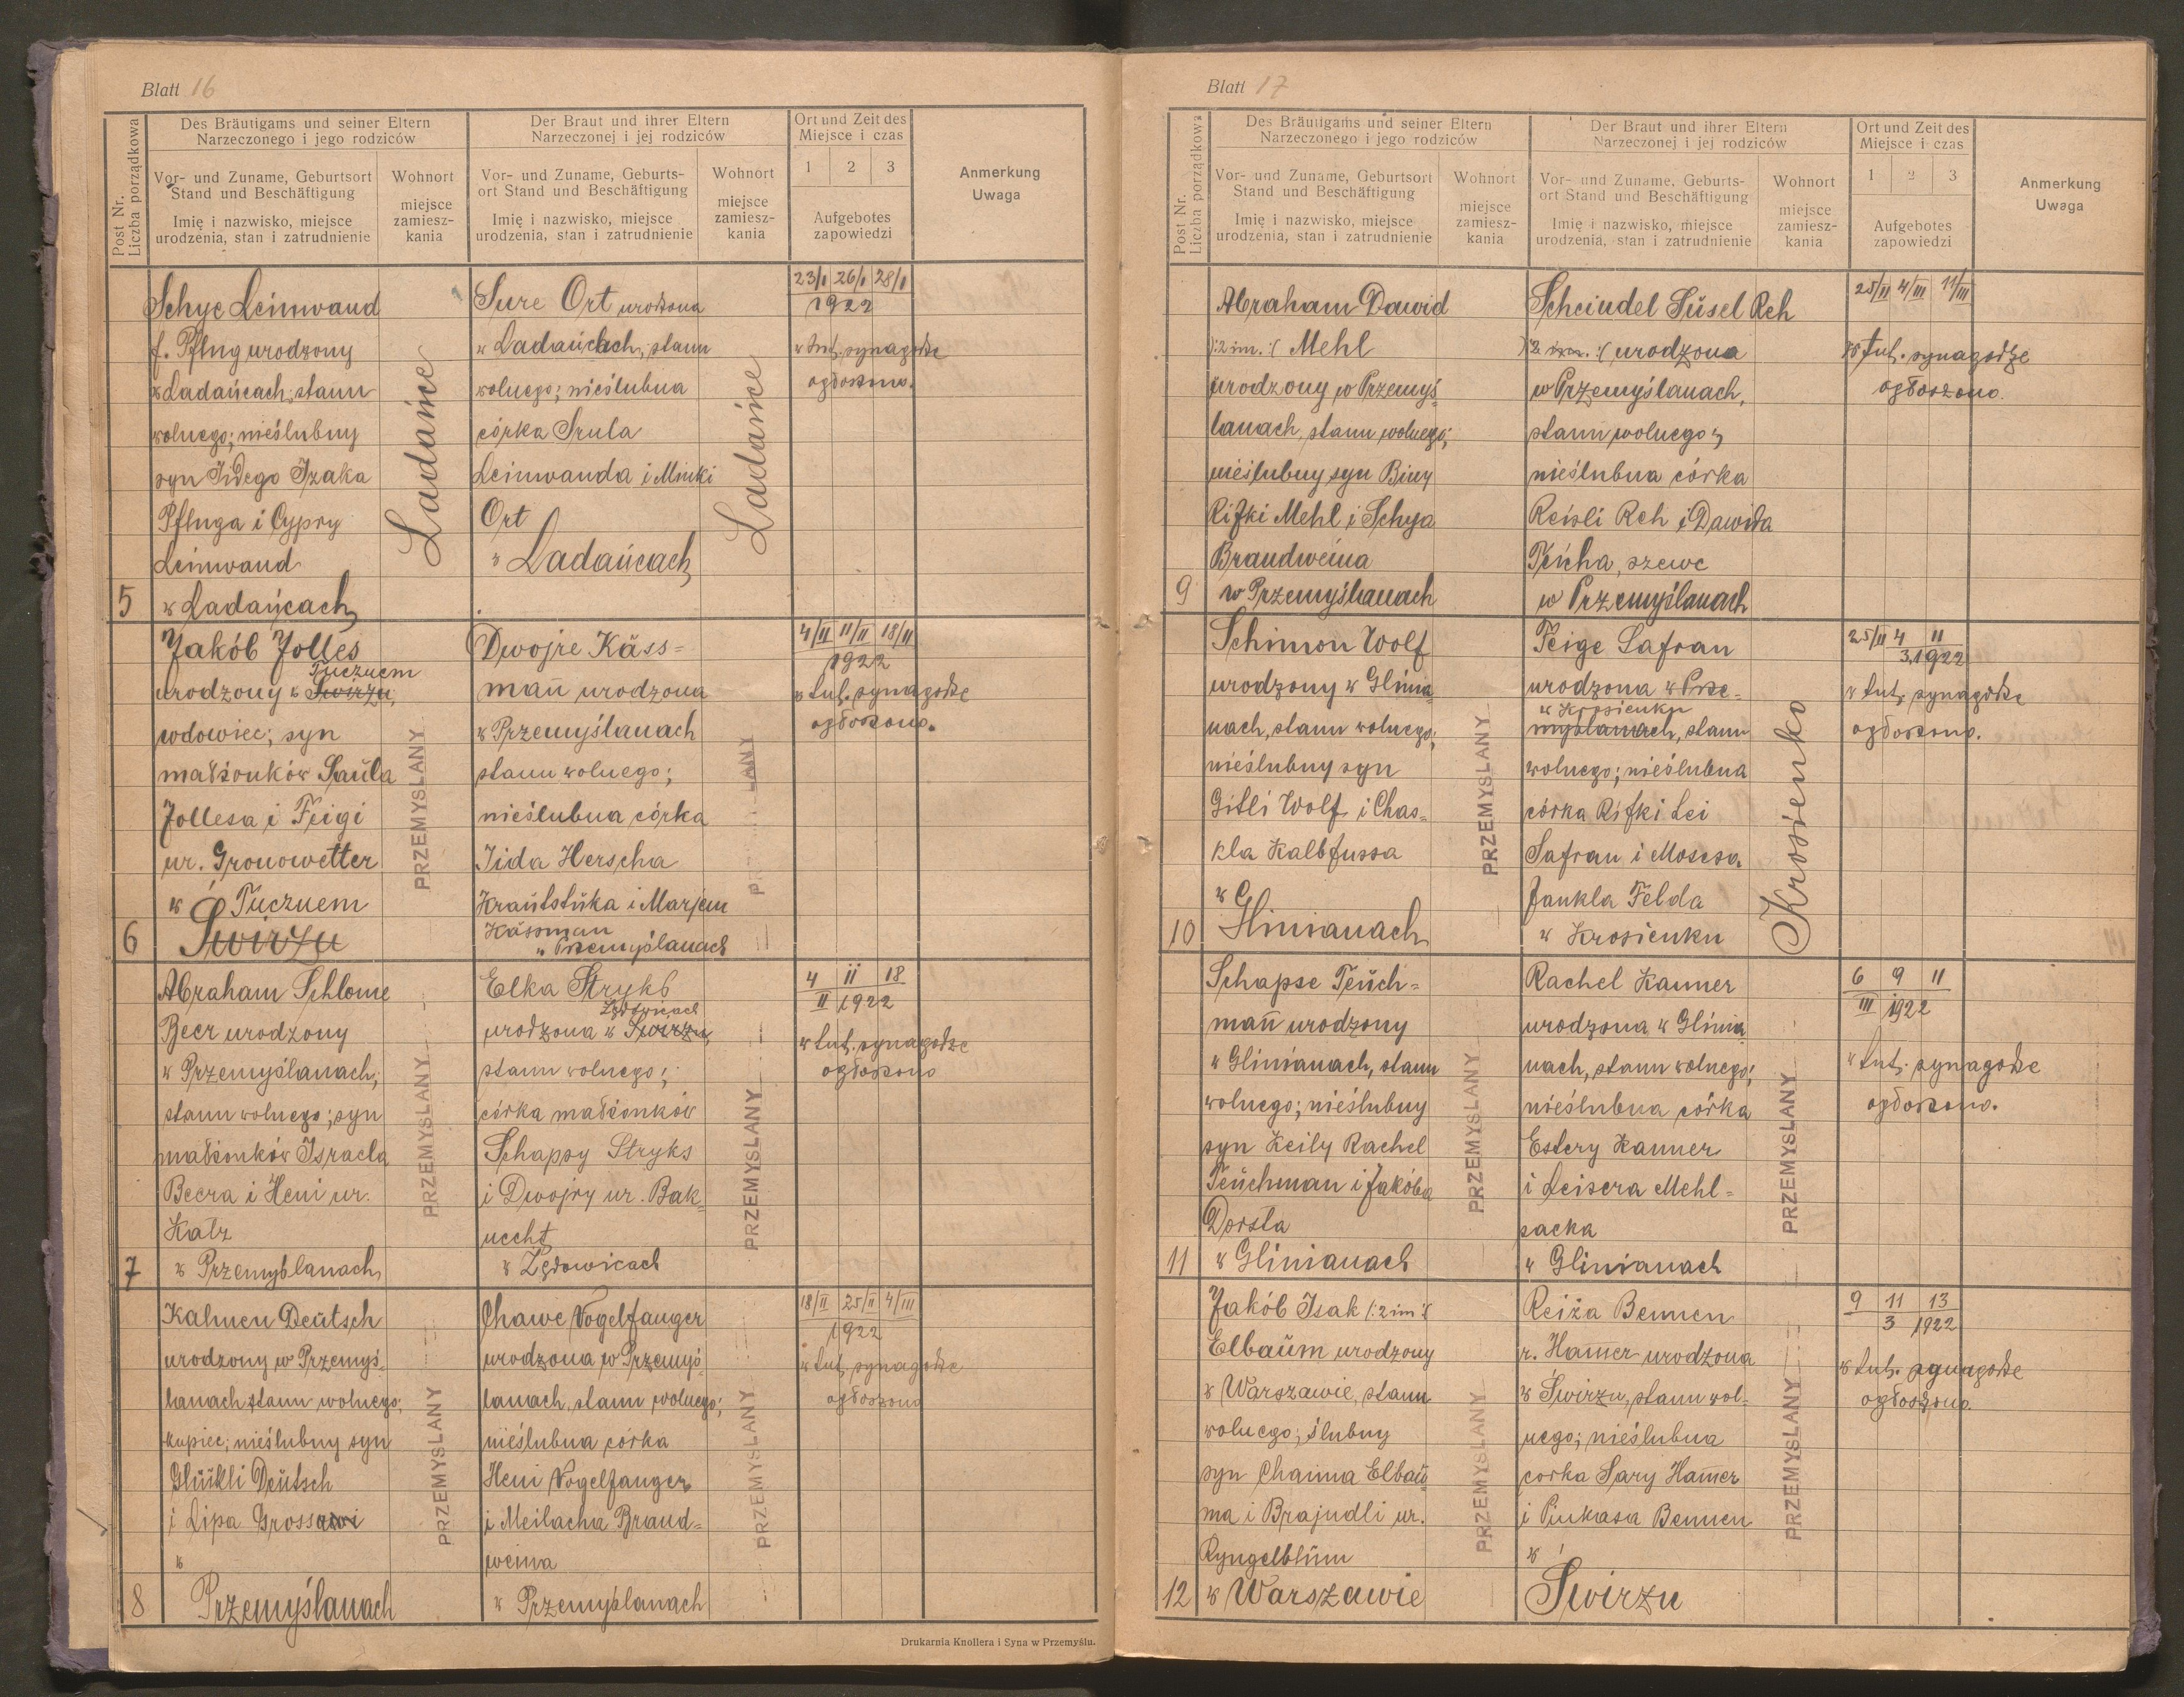 Blatt 16
Post Nr.
Liczba porządkowa
Des Bräutigams und seiner Eltern
Narzeczonego i jego rodziców
Vor- und Zuname, Geburtsort
Stand und Beschäftigung
Imię i nazwisko, miejsce
urodzenia, stan i zatrudnienie
Wohnort
miejsce
zamiesz-
kania
Der Braut und ihrer Eltern
Narzeczonej i jej rodziców
Vor- und Zuname, Geburts-
ort Stand und Beschäftigung
Imię i nazwisko, miejsce
urodzenia, stan i zatrudnienie
Wohnort
miejsce
zamiesz-
kania
Ort und Zeit des
Miejsce i czas
1 2 3
Aufgebotes
zapowiedzi
Anmerkung
Uwaga
5
Schye Leinwand
f. Pflug urodzony
w Ladańcach, stanu
wolnego; nieślubny
syn Judego Izaka
Pfluga i Cypry
Leinwand
w Ladańcach
Ladańce
Sure Ort urodzona
w Ladańcach, stanu
wolnego; nieślubna
córka Srula
Leinwanda i Minki
Ort
w Ladańcach
Ladańce
23/I 26/I 28/I
1922
w tut. synagodze
ogłoszono.
6
Jakób Jolles
Tucznem
urodzony w Świrzu,
wdowiec; syn
małżonków Saula
Jollesa i Feigi
ur. Gronowetter
w Tucznem
Świrzu
PRZEMYSLANY
Dwojre Käss-
mañ urodzona
w Przemyślanach
stanu wolnego;
nieślubna córka
Jida Herscha
Krautstüka i Marjem
Kässman
w Przemyślanach
4/II 11/II 18/II
1922
w tut. synagodze
ogłoszono.
7
Abraham Schlome
Beer urodzony
w Przemyślanach;
stanu wolnego; syn
małżonków Israela
Beera i Heni ur.
Katz
w Przemyślanach
PRZEMYSLANY
Elka Stryks
Zędowicach
urodzona w Świrzu,
stanu wolnego;
córka małżonków
Schapsy Stryks
i Dwojry ur. Bak-
necht
w Zędowicach
PRZEMYSLANY
4 11 18
II 1922
w tut. synagodze
ogłoszono
8
Kalmen Deutsch
urodzony w Przemyś-
lanach stanu wolnego;
kupiec; nieślubny syn
Glückli Deutsch
i Lipa Gross
w
Przemyślanach
PRZEMYSLANY
Chawe Vogelfanger
urodzona w Przemyś-
lanach, stanu wolnego;
nieślubna córka
Heni Vogelfanger
i Meilacha Brand-
weina
w Przemyślanach
PRZEMYSLANY
18/II 25/II 4/III
1922
w tut. synagodze
ogłoszono
Drukarnia Knollera i Syna w Przemyślu.
Blatt 17
Post Nr.
Liczba porządkowa
Des Bräutigams und seiner Eltern
Narzeczonego i jego rodziców
Vor- und Zuname, Geburtsort
Stand und Beschäftigung
Imię i nazwisko, miejsce
urodzenia, stan i zatrudnienie
Wohnort
miejsce
zamiesz-
kania
Der Braut und ihrer Eltern
Narzeczonej i jej rodziców
Vor- und Zuname, Geburts-
ort Stand und Beschäftigung
Imię i nazwisko, miejsce
urodzenia, stan i zatrudnienie
Wohnort
miejsce
zamiesz-
kania
Ort und Zeit des
Miejsce i czas
1 2 3
Aufgebotes
zapowiedzi
Anmerkung
Uwaga
9
Abraham Dawid
/:2 im.:/ Mehl
urodzony w Przemyś-
lanach, stanu wolnego;
nieślubny syn Biny
Rifki Mehl i Schya
Brandweina
w Przemyślanach
Scheindel Süsel Reh
/:2 im.:/ urodzona
w Przemyślanach,
stanu wolnego;
nieślubna córka
Reisli Reh i Dawida
Teicha, szewc
w Przemyślanach
25/II 4/III 11/III
w tut. synagodze
ogłoszono.
10
Schimon Wolf
urodzony w Glinia-
nach, stanu wolnego;
nieślubny syn
Gitli Wolf i Chas-
kla Kalbfussa
w
Glinianach
PRZEMYSLANY
Feige Safran
urodzona w Prze-
w Krosienku
myślanach, stanu
wolnego; nieślubna
córka Rifki Lei
Safran i Mosesa
Jankla Felda
w Krosienku
Krosienko
25/II 4 11
3.1922
w tut. synagodze
ogłoszono.
11
Schapse Teuch-
mañ urodzony
w Glinianach, stanu
wolnego; nieślubny
syn Keily Rachel
Teuchman i Jakóba
Dorsta
w Glinianach
PRZEMYSLANY
Rachel Kanner
urodzona w Glinia-
nach, stanu wolnego;
nieślubna córka
Estery Kanner
i Leisera Mehl-
sacka
w Glinianach
PRZEMYSLANY
6 9 11
III 1922
w tut. synagodze
ogłoszono.
12
Jakób Isak /:2 im:/
Elbaum urodzony
w Warszawie, stanu
wolnego; ślubny
syn Chaima Elbau-
ma i Brajndli ur.
Ryngelblum
w Warszawie
PRZEMYSLANY
Reiża Bennen
r. Ham̄er urodzona
w Świrzu, stanu wol-
nego; nieślubna
corka Sary Ham̄er
i Pinkasa Bennen
w
Świrzu
PRZEMYSLANY
9 11 13
3 1922
w tut. synagodze
ogłoszono.